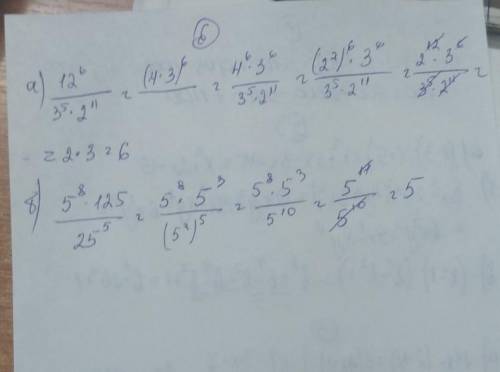 6
а) 12⁶ / 3⁵·2¹¹ = (4·3)⁶ / = 4⁶·3⁶ / 3⁵·2¹¹ = (2²)⁶·3⁶ / 3⁵·2¹¹ = 2¹²·3⁶ / 3⁵·2¹¹ =
= 2·3=6
б) 5⁸·125 / 25⁵ = 5⁸·5³ / (5²)⁵ = 5⁸·5³ / 5¹⁰ = 5¹¹ / 5¹⁰ = 5